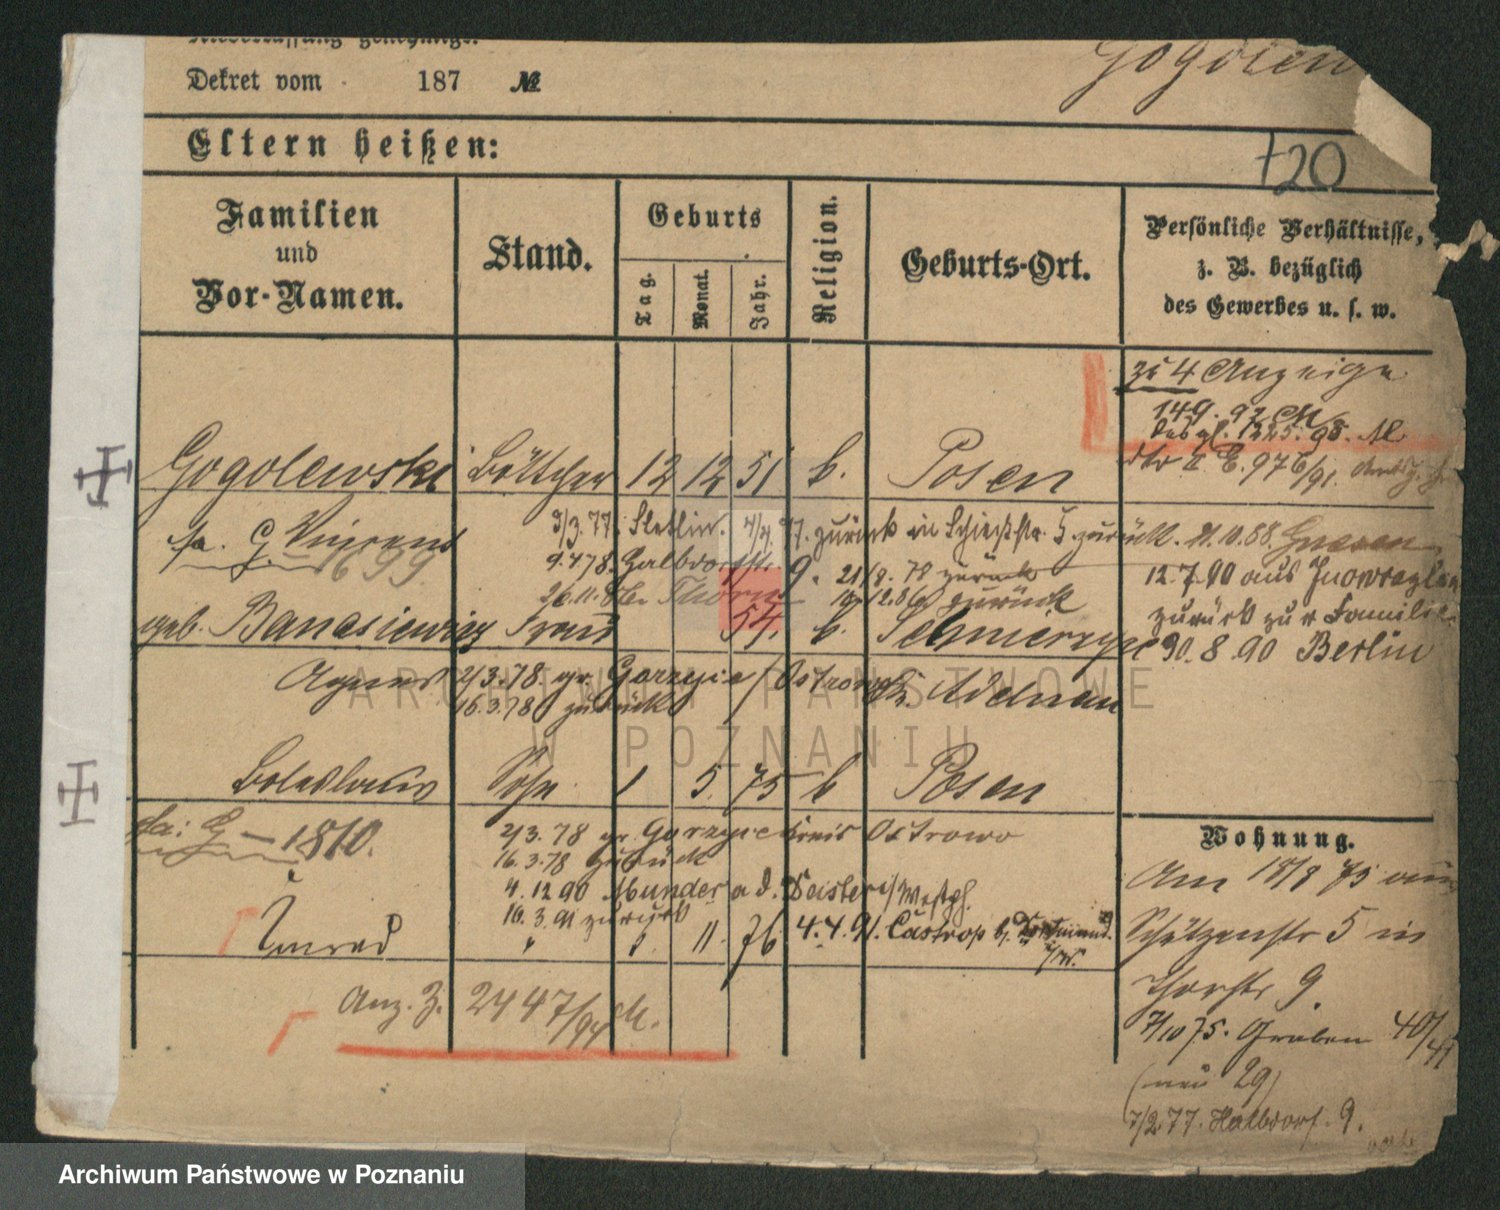 Niederlassung genehmigt.
Dekret vom 187 №
Gogolew
720
Eltern heißen:
Familien
und
Vor-Namen.
Stand.
Geburts
Tag.
Monat.
Jahr.
Religion.
Geburts-Ort.
Persönliche Verhältnisse,
z. B. bezüglich
des Gewerbes u. s. w.
zu 4 Anzeige
149. 92 M
desgl. 1225. 95. M.
Gogolewski Böttcher 12 12 51 k. Posen
9/3. 77. Stettin. 4/4. 77. zurück in Schießstr. 5. zurück. 21.10.88. Gnesen
1699
9.4 78. Halbdorfstr. 9. 21/8. 78 zurück
12.7.90 aus Inowrazlaw
26.11.86. Thorn 19.12.86 zurück
zurück zur Familie
geb. Banasiewicz Frau 54. k.
30.8.90 Berlin
Agnes 2/3.78 gr. Gorzyce / Ostrowo Kr. Adelnau
16.3.78 zurück
Boleslaus Sohn 1 5. 75 k Posen
fa: G — 1810.
2/3.78 gr. Gorzyce Kreis Ostrowo
16.3.78 zurück
4.12.90 Munder a d. Deister / Westph.
16.3.91 zurück
Conrad " 11. 76 4.4.91. Castrop b/ Dortmund
i/W.
Anz. Z. 2447/94 M.
Wohnung.
Am 18/8 75 aus
Schützenstr 5 in
Thorstr 9.
7/10 75. Graben 40/41
(neu 29)
7/2.77. Halbdorf. 9.
ARCHIWUM PAŃSTWOWE
W POZNANIU
Archiwum Państwowe w Poznaniu